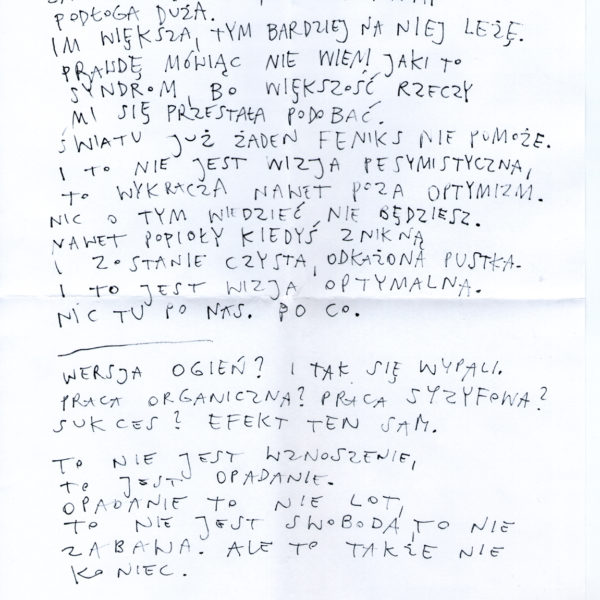 PODŁOGA DUŻA.
IM WIĘKSZA, TYM BARDZIEJ NA NIEJ LEŻĘ.
PRAWDĘ MÓWIĄC NIE WIEM, JAKI TO
SYNDROM, BO WIĘKSZOŚĆ RZECZY
MI SIĘ PRZESTAŁA PODOBAĆ.
ŚWIATU JUŻ ŻADEN FENIKS NIE POMOŻE.
I TO NIE JEST WIZJA PESYMISTYCZNA,
TO WYKRACZA NAWET POZA OPTYMIZM.
NIC O TYM WIEDZIEĆ NIE BĘDZIESZ.
NAWET POPIOŁY KIEDYŚ ZNIKNĄ
I ZOSTANIE CZYSTA, ODKAŻONA PUSTKA.
I TO JEST WIZJA OPTYMALNA.
NIC TU PO NAS. PO CO.
WERSJA OGIEŃ? I TAK SIĘ WYPALI.
PRACA ORGANICZNA? PRACA SYZYFOWA?
SUKCES? EFEKT TEN SAM.
TO NIE JEST WZNOSZENIE,
TO JEST OPADANIE.
OPADANIE TO NIE LOT,
TO NIE JEST SWOBODA, TO NIE
ZABAWA. ALE TO TAKŻE NIE
KONIEC.